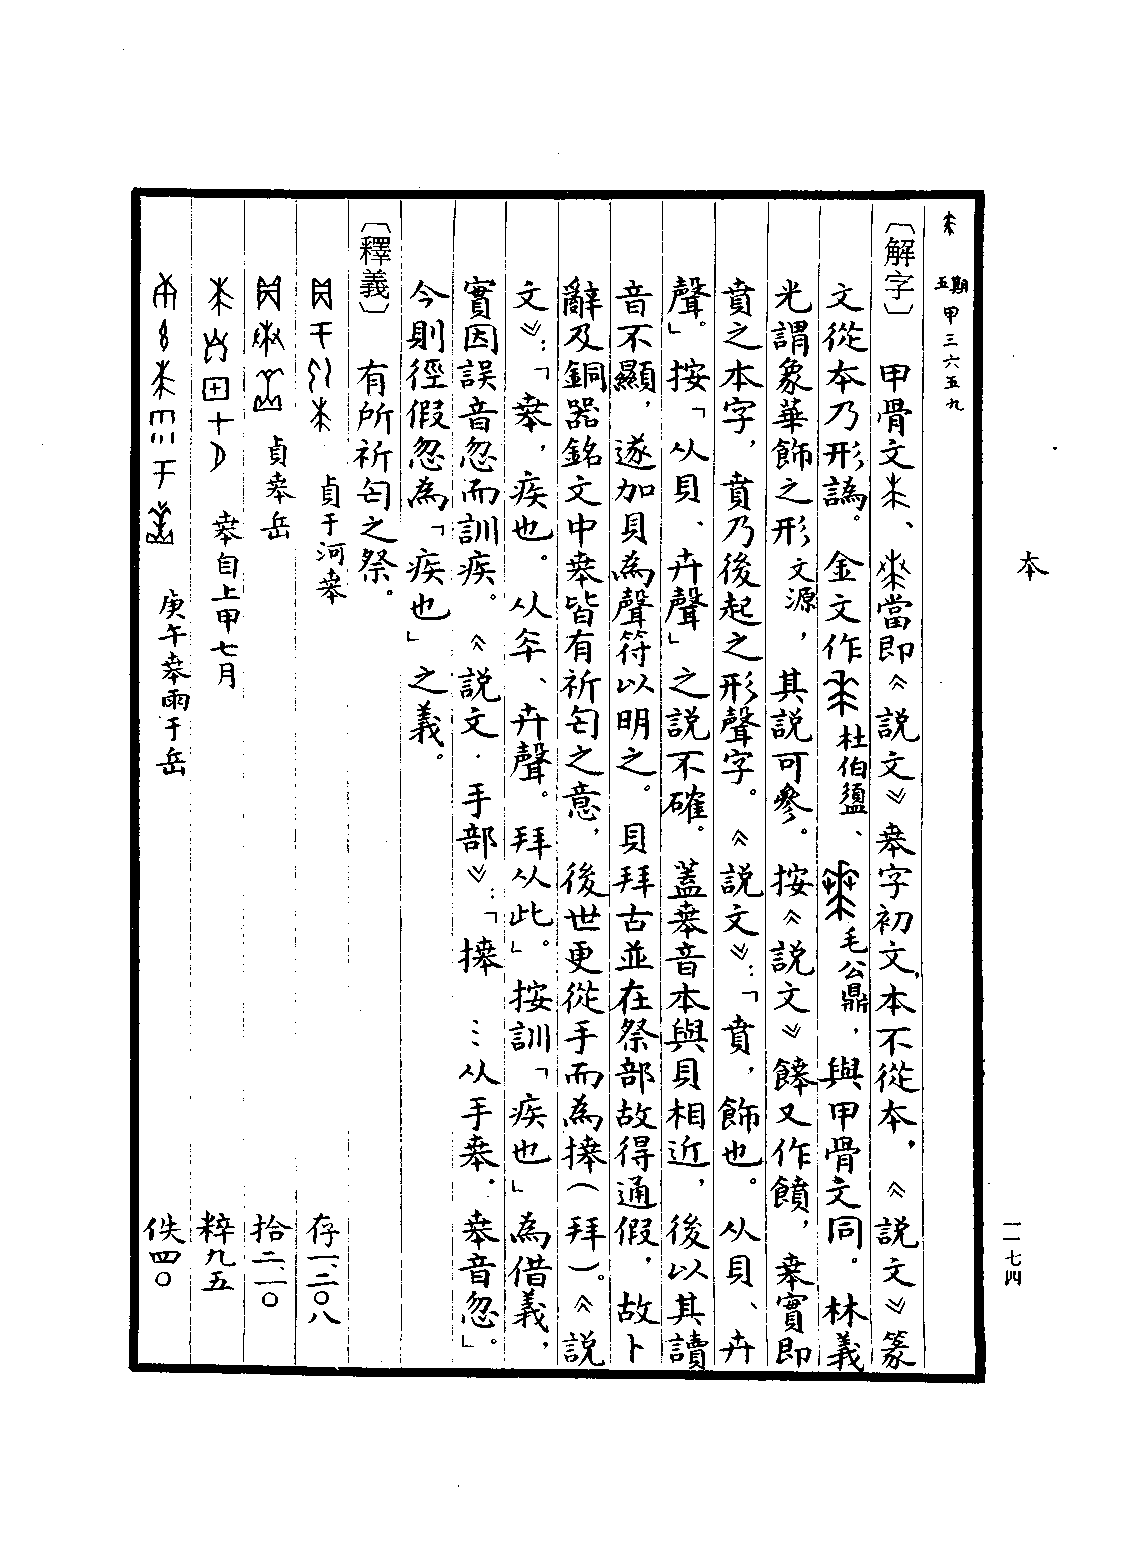 夲
一一七四
五期 甲三六五九
〔解字〕 甲骨文、當即《說文》𠦪字初文,本不從夲,《說文》篆
文從夲乃形譌。金文作杜伯盨、毛公鼎,與甲骨文同。林義
光謂象華飾之形文源,其說可參。按《說文》餴又作饙,𠦪實即
賁之本字,賁乃後起之形聲字。《說文》:「賁,飾也。从貝、卉
聲」。按「从貝、卉聲」之說不確。蓋𠦪音本與貝相近,後以其讀
音不顯,遂加貝為聲符以明之。貝拜古並在祭部故得通假,故卜
辭及銅器銘文中𠦪皆有祈匄之意,後世更從手而為𢷎(拜)。《說
文》:「𠦪,疾也。从夲、卉聲。拜从此」。按訓「疾也」為借義,
實因誤音忽而訓疾。《說文·手部》:「𢷎……从手𠦪.𠦪音忽。」
今則徑假忽為「疾也」之義。
〔釋義〕 有所祈匄之祭。
貞于河𠦪 存一、二〇八
貞𠦪岳 拾二、一〇
𠦪自上甲七月 粹九五
庚午𠦪雨于岳 佚四〇